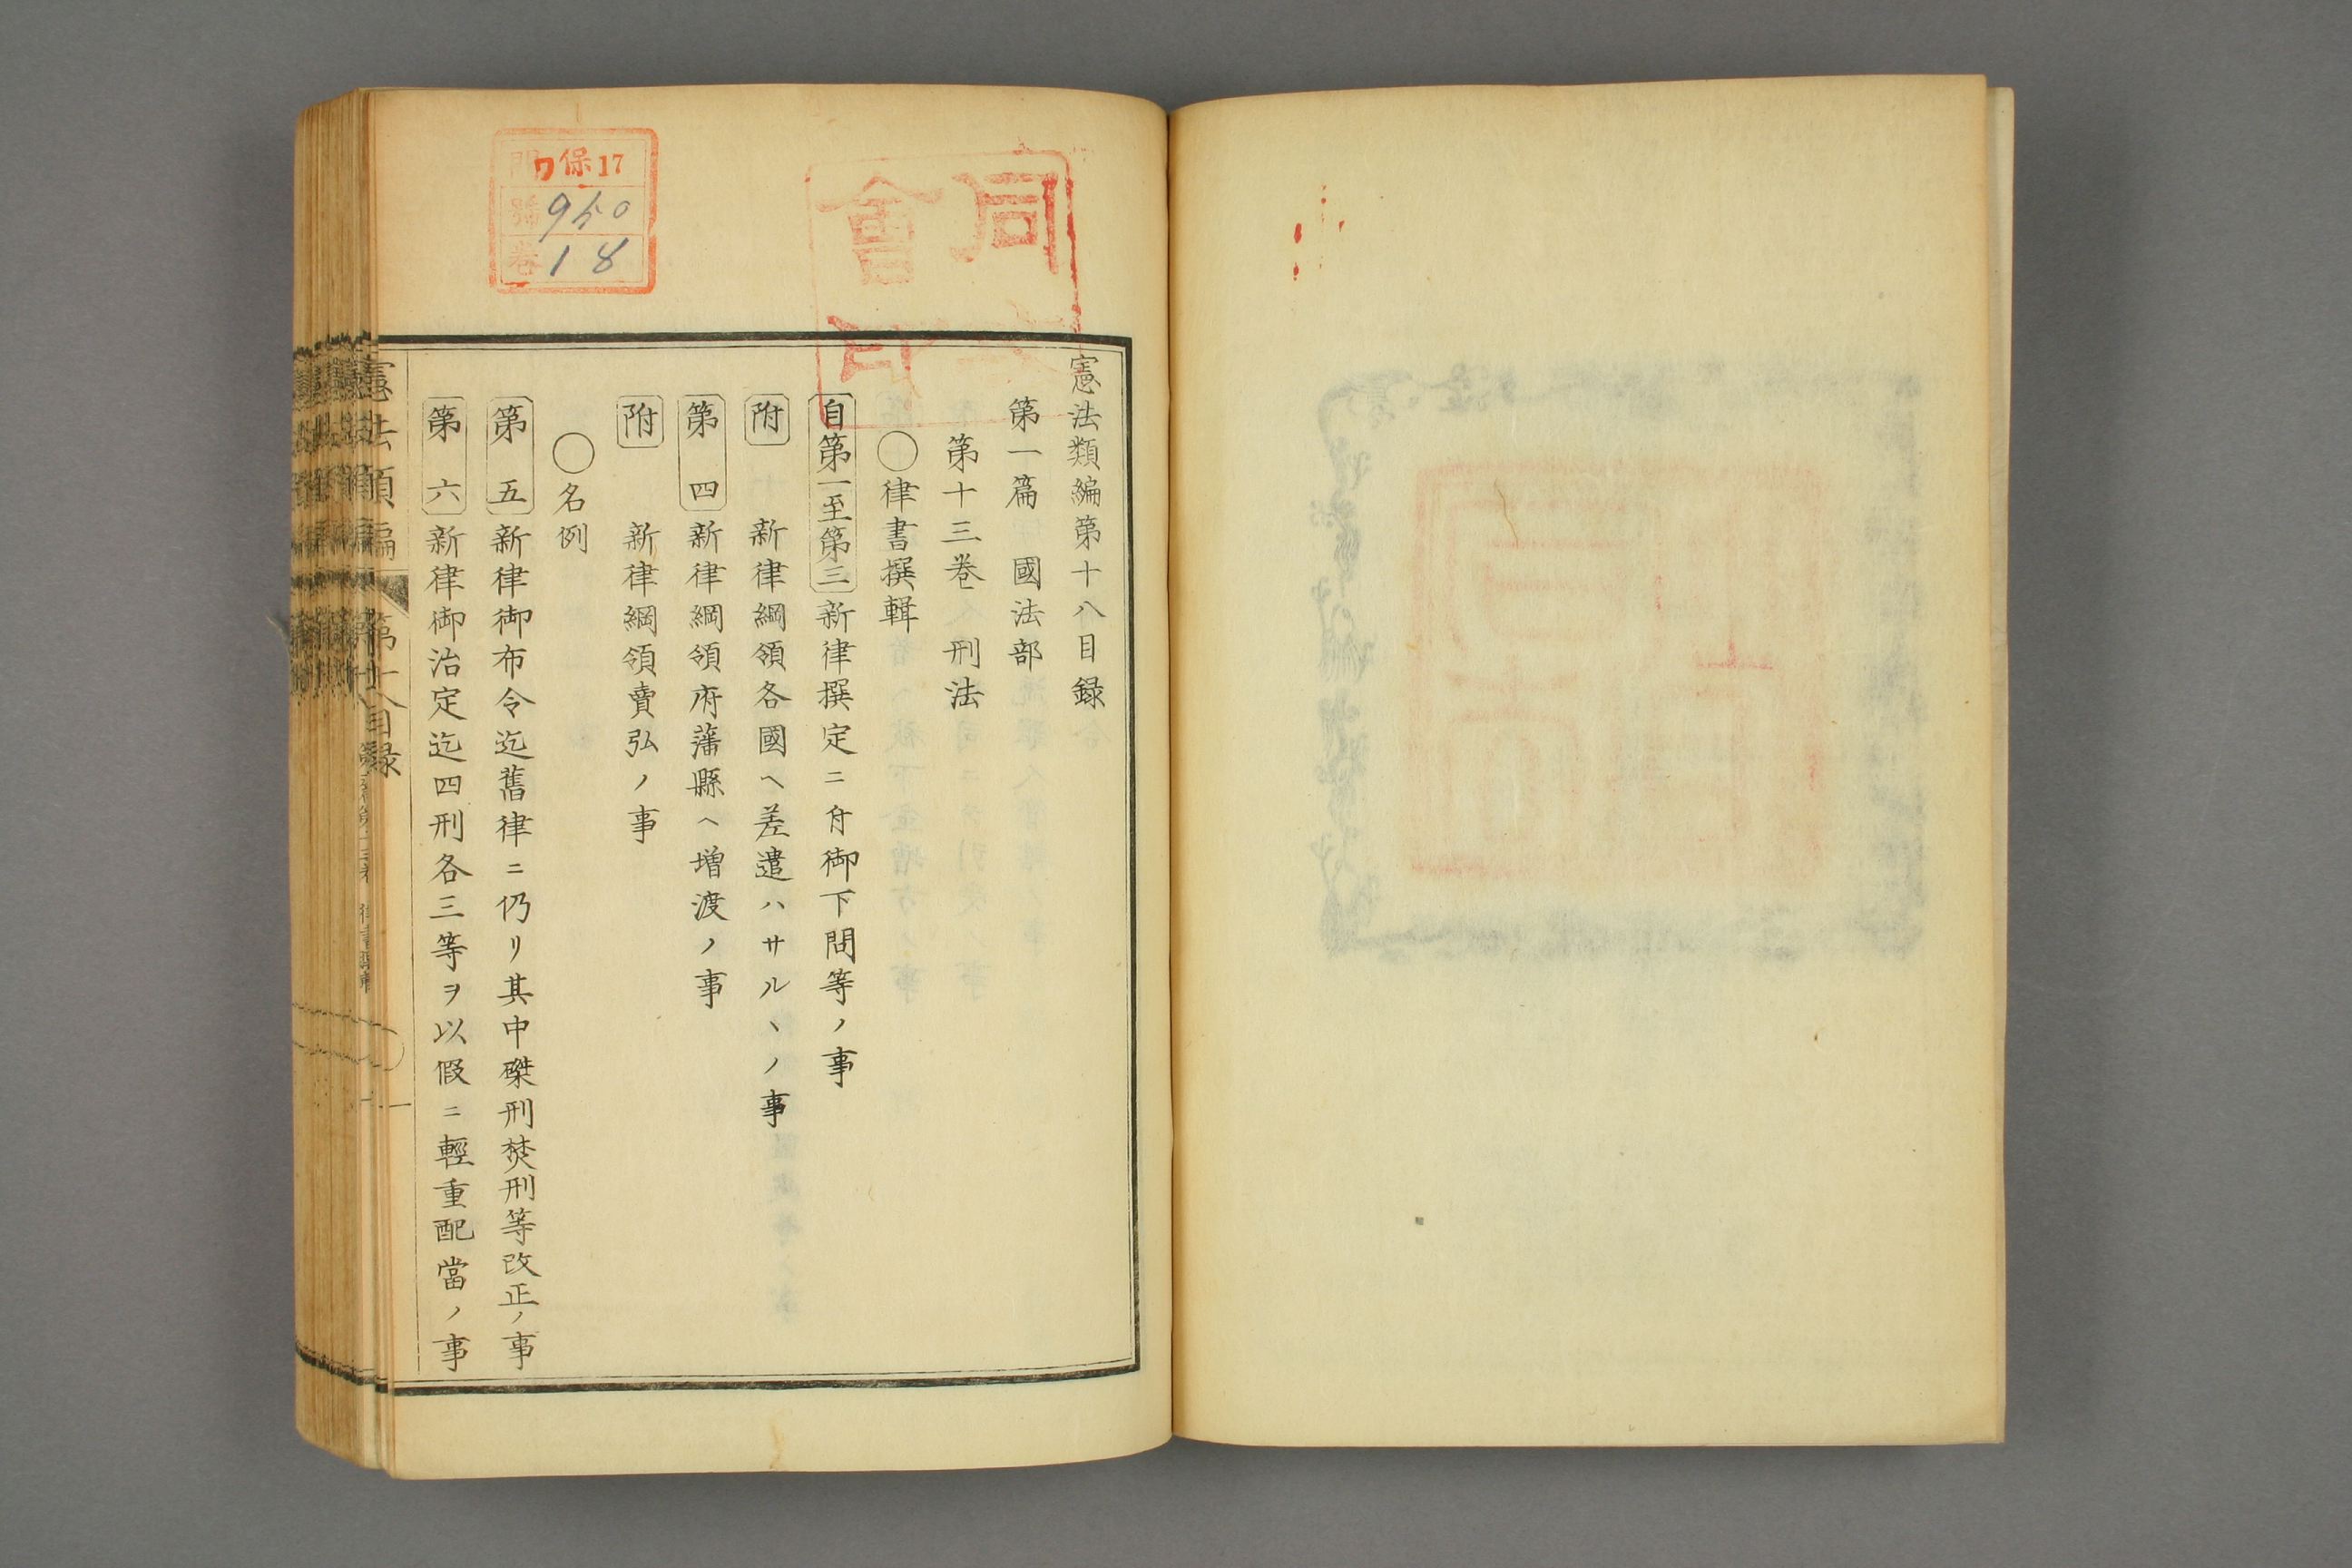 憲法類編第十八目録
第一篇 國法部
第十三巻 刑法
〇律書撰輯
自第一至第三 新律撰定ニ付御下問等ノ事
附 新律綱領各國ヘ差遣ハサルヽノ事
第四 新律綱領府藩縣ヘ増渡ノ事
附 新律綱領賣弘ノ事
〇名例
第五 新律御布令迄舊律ニ仍リ其中磔刑焚刑等改正ノ事
第六 新律御治定迄四刑各三等ヲ以假ニ輕重配當ノ事
憲法類編 第十八目録
門 ワ保17
號 950
巻 18